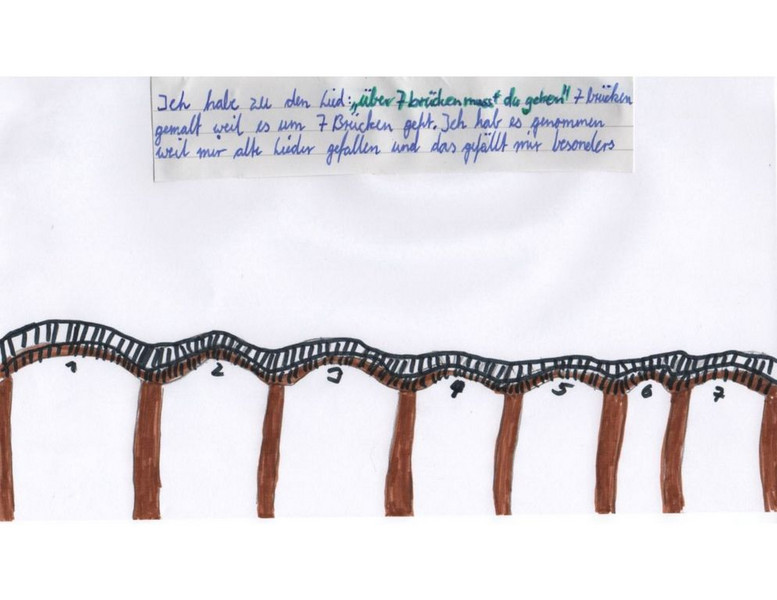 Ich habe zu den Lied: „über 7 brücken musst du gehen" 7 brücken
gemalt weil es um 7 Brücken geht. Ich hab es genommen
weil mir alte Lieder gefallen und das gefällt mir besonders
1 2 3 4 5 6 7